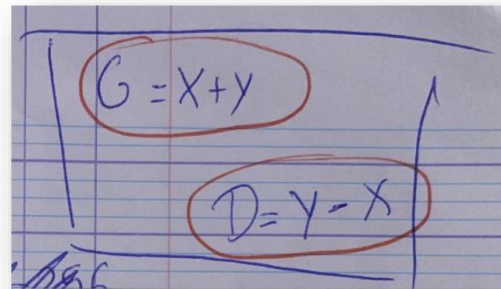 G = X + Y
D = Y - X